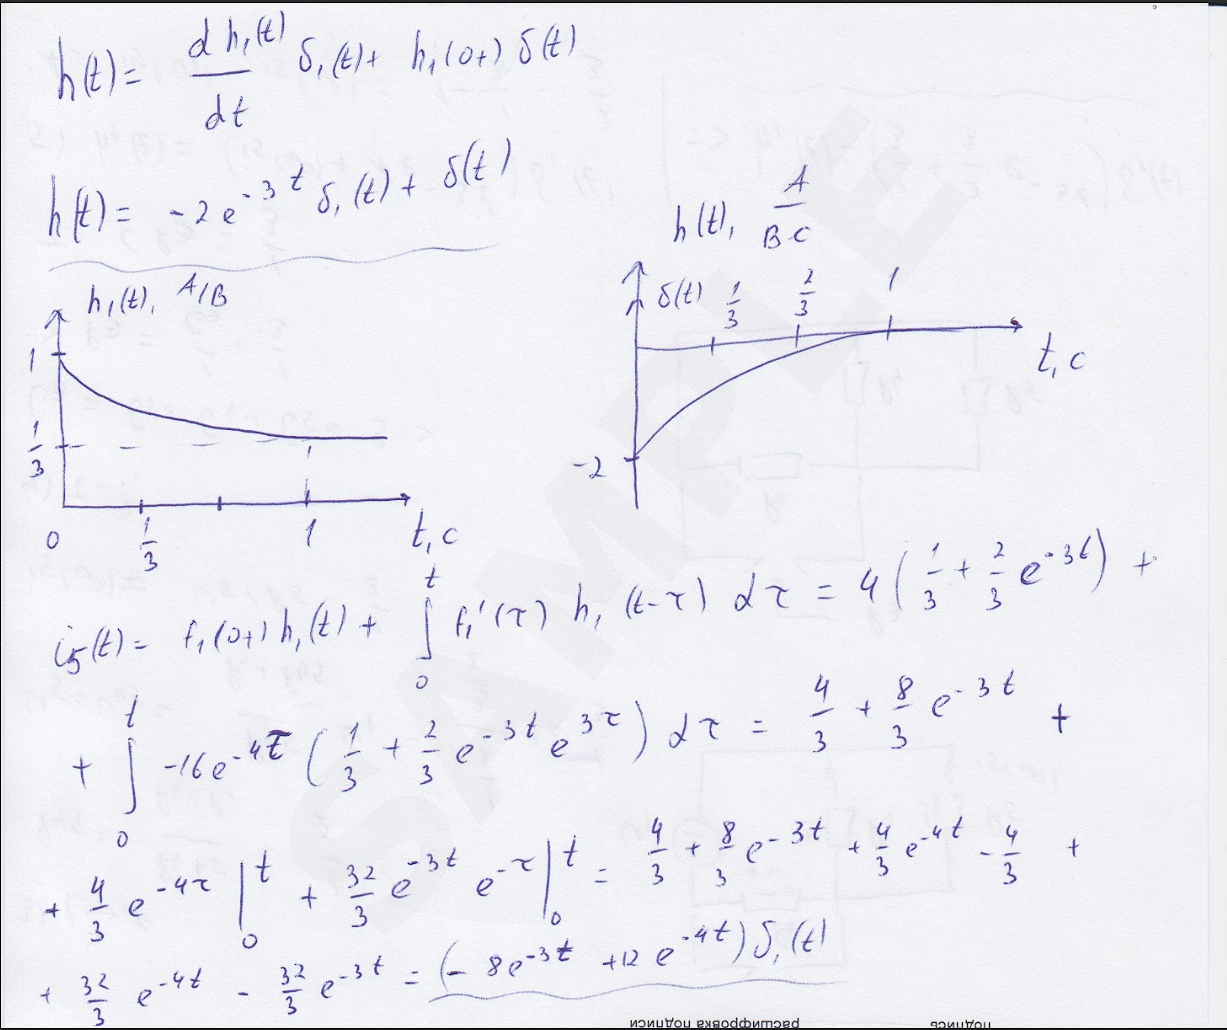 h(t) = d h₁(t)/dt δ₁(t) + h₁(0+) δ(t)
h(t) = -2e^{-3t} δ₁(t) + δ(t)
h₁(t), А/В
1
1/3
0
1/3
1
t, с
h(t), А/(В·С)
δ(t)
1/3
2/3
1
t, с
-2
i₅(t) = f₁(0+) h₁(t) + ∫₀ᵗ f₁'(τ) h₁(t-τ) dτ = 4(1/3 + 2/3 e^{-3t}) +
+ ∫₀ᵗ -16e^{-4τ} (1/3 + 2/3 e^{-3t} e^{3τ}) dτ = 4/3 + 8/3 e^{-3t} +
+ 4/3 e^{-4τ} |₀ᵗ + 32/3 e^{-3t} e^{-τ} |₀ᵗ = 4/3 + 8/3 e^{-3t} + 4/3 e^{-4t} - 4/3 +
+ 32/3 e^{-4t} - 32/3 e^{-3t} = (-8e^{-3t} + 12e^{-4t}) δ₁(t)
SAMPLE
подпись
расшифровка подписи